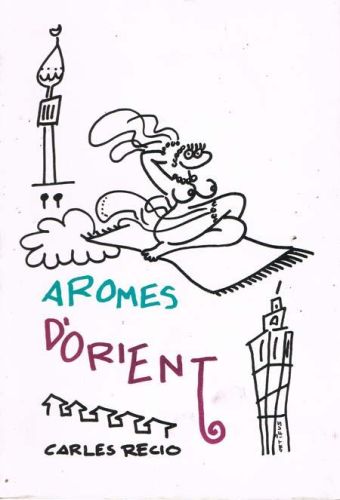 AROMES
D'ORIENT
CARLES RECIO
ORTIFUS